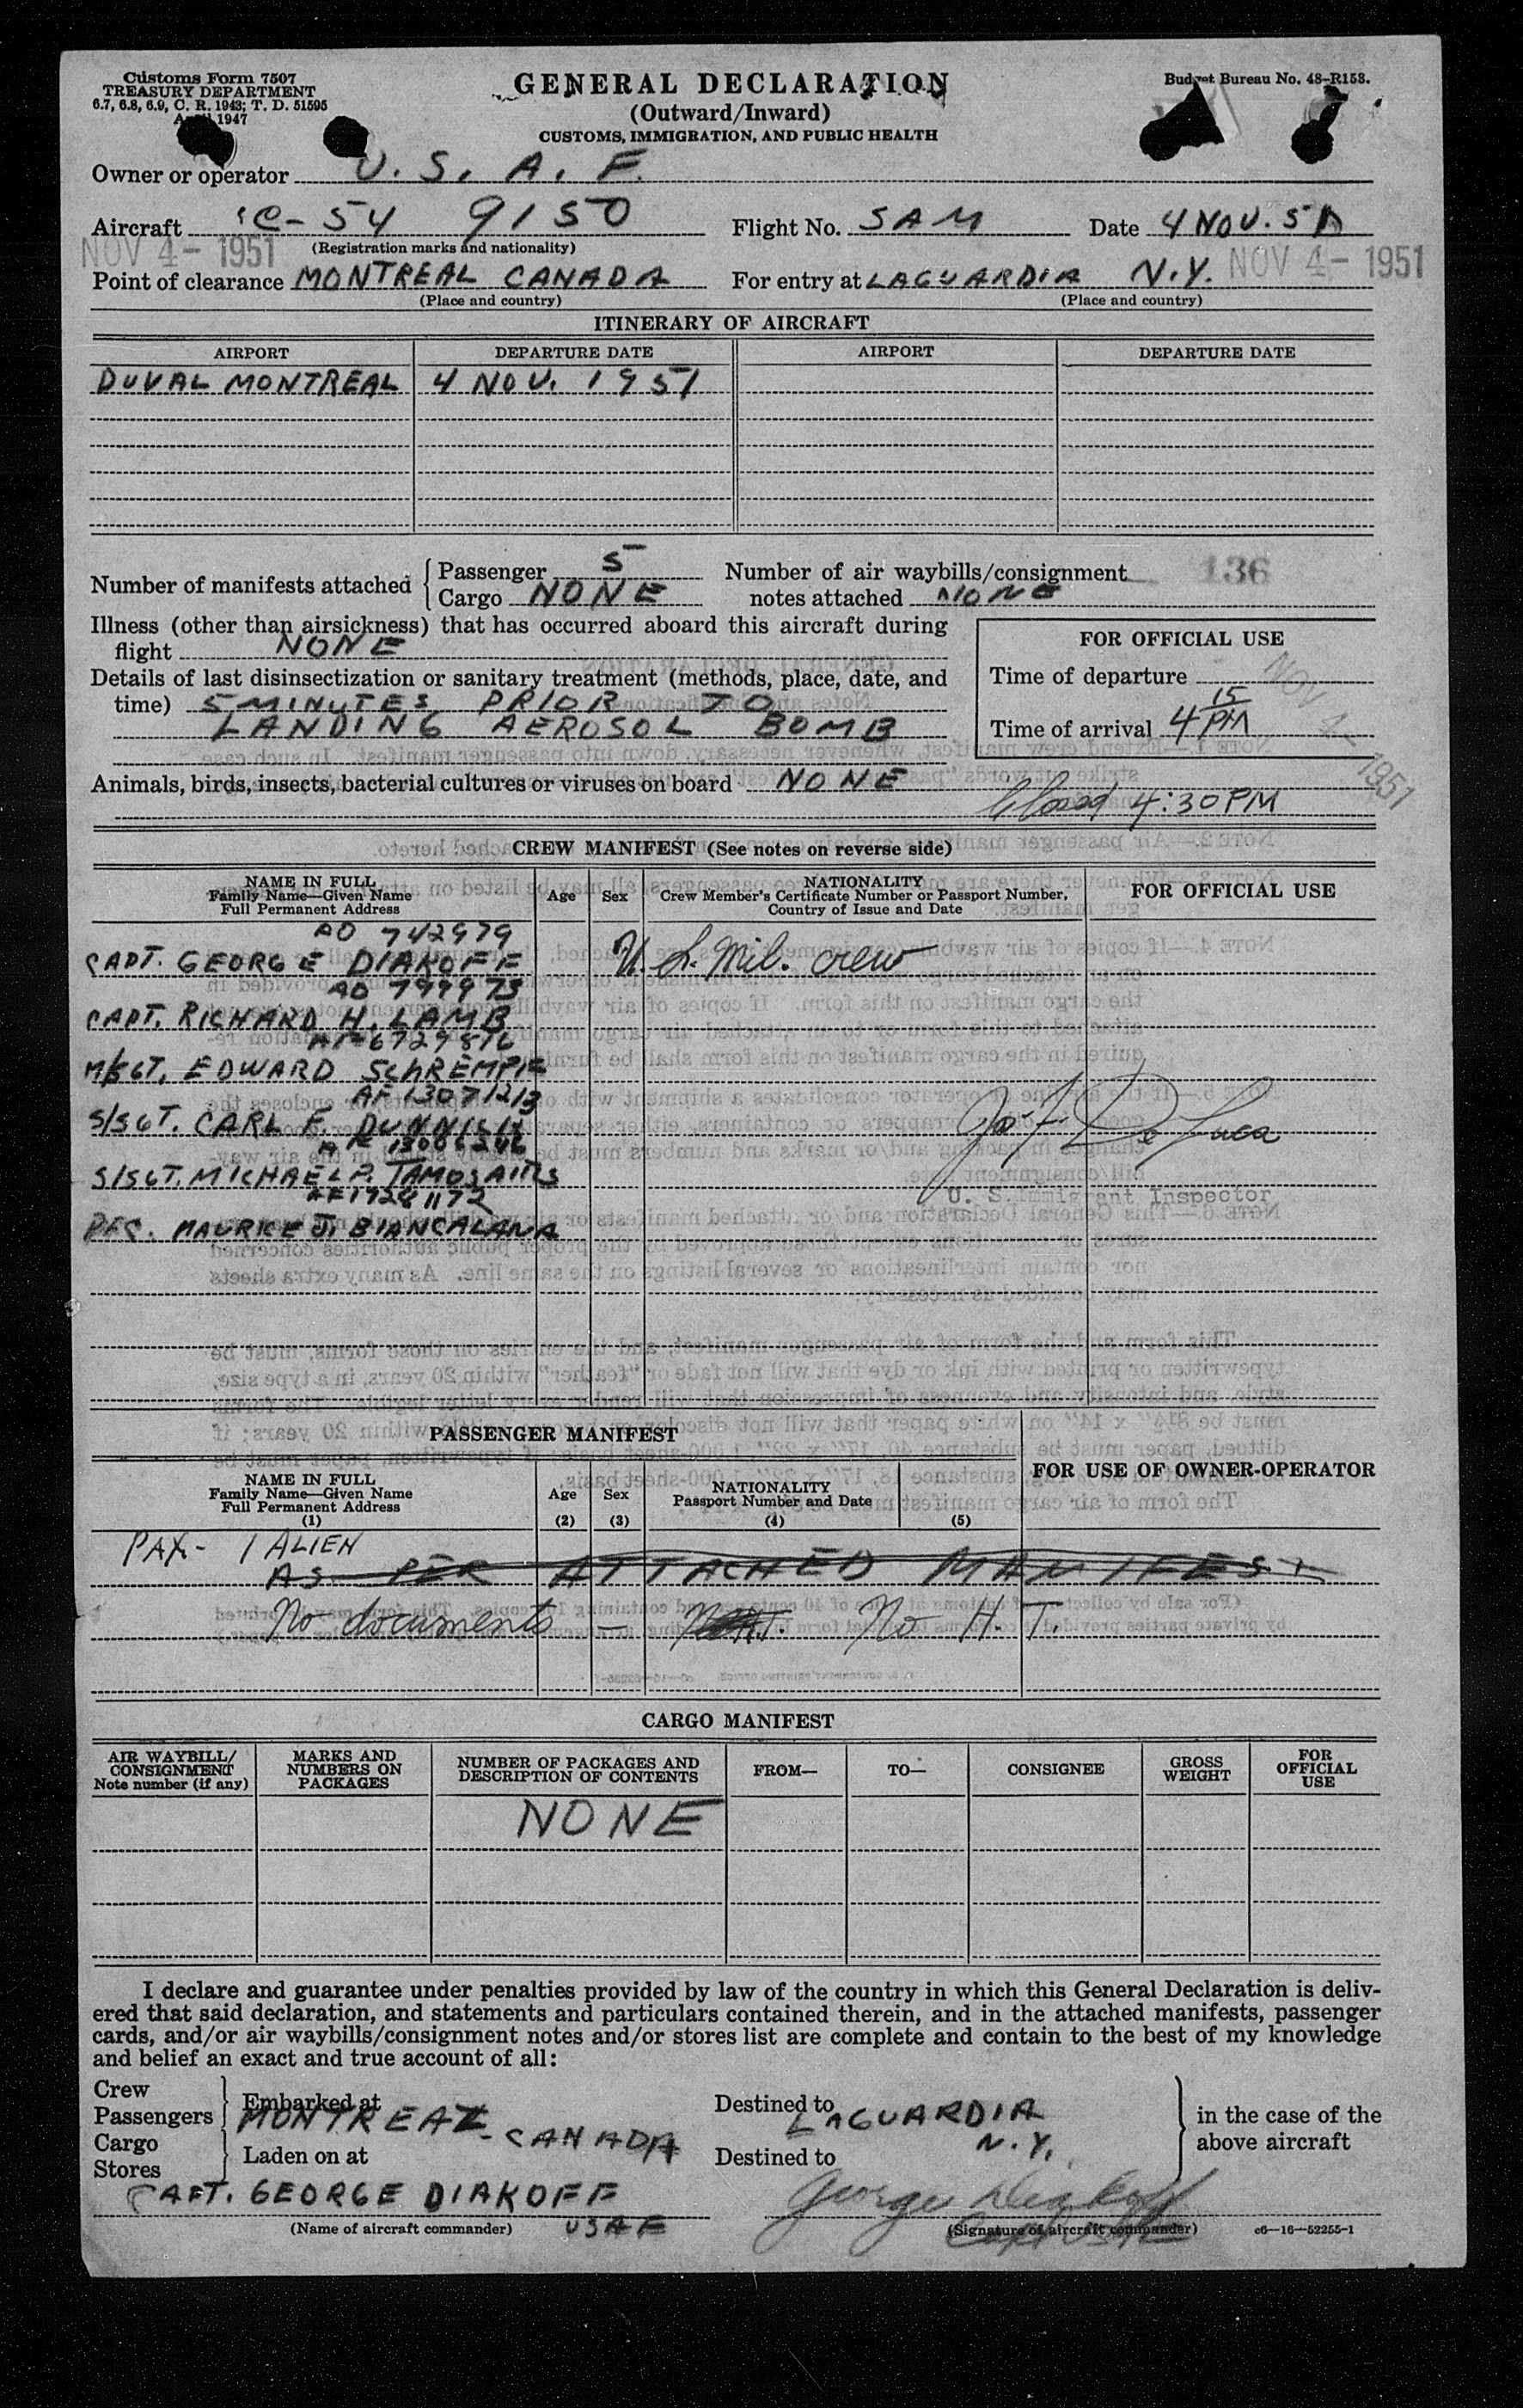 Customs Form 7507
TREASURY DEPARTMENT
6.7, 6.8, 6.9, C. R. 1943; T. D. 51595
1947
GENERAL DECLARATION
(Outward/Inward)
CUSTOMS, IMMIGRATION, AND PUBLIC HEALTH
Budget Bureau No. 48-R158.
Owner or operator U. S. A. F.
Aircraft C-54 9150 Flight No. SAM Date 4 NOV. 51
NOV 4 - 1951 (Registration marks and nationality)
Point of clearance MONTREAL CANADA For entry at LAGUARDIA N.Y. NOV 4 - 1951
(Place and country) (Place and country)
ITINERARY OF AIRCRAFT
AIRPORT DEPARTURE DATE AIRPORT DEPARTURE DATE
DUVAL MONTREAL 4 NOV. 1951
Number of manifests attached { Passenger 5 Number of air waybills/consignment 136
Cargo NONE notes attached NONE
Illness (other than airsickness) that has occurred aboard this aircraft during
flight NONE
FOR OFFICIAL USE
Details of last disinsectization or sanitary treatment (methods, place, date, and
time) 5 MINUTES PRIOR TO
LANDING AEROSOL BOMB
Time of departure
Time of arrival 4 15 PM
NOV 4 - 1951
Animals, birds, insects, bacterial cultures or viruses on board NONE
Closed 4:30 PM
CREW MANIFEST (See notes on reverse side)
NAME IN FULL
Family Name—Given Name
Full Permanent Address
Age Sex
NATIONALITY
Crew Member's Certificate Number or Passport Number,
Country of Issue and Date
FOR OFFICIAL USE
AO 742979
CAPT. GEORGE DIAKOFF U. S. Mil. crew
AO 799973
CAPT. RICHARD H. LAMB
M/SGT. EDWARD SCHREMPIE
AF 13071213
S/SGT. CARL F.
Jos F De Luca
S/SGT. MICHAEL P. TAMOSAITIS
U. S. Immigrant Inspector
AF 17281172
PFC. MAURICE J. BIANCALANA
PASSENGER MANIFEST
NAME IN FULL
Family Name—Given Name
Full Permanent Address
(1)
Age
(2)
Sex
(3)
NATIONALITY
Passport Number and Date
(4) (5)
FOR USE OF OWNER-OPERATOR
PAX- 1 ALIEN
AS PER ATTACHED MANIFEST
No documents — No H. T.
CARGO MANIFEST
AIR WAYBILL/
CONSIGNMENT
Note number (if any)
MARKS AND
NUMBERS ON
PACKAGES
NUMBER OF PACKAGES AND
DESCRIPTION OF CONTENTS
FROM— TO— CONSIGNEE
GROSS
WEIGHT
FOR
OFFICIAL
USE
NONE
I declare and guarantee under penalties provided by law of the country in which this General Declaration is deliv-
ered that said declaration, and statements and particulars contained therein, and in the attached manifests, passenger
cards, and/or air waybills/consignment notes and/or stores list are complete and contain to the best of my knowledge
and belief an exact and true account of all:
Crew
Passengers
Cargo
Stores
Embarked at
MONTREAL - CANADA
Laden on at
Destined to
LAGUARDIA
N.Y.
Destined to
in the case of the
above aircraft
CAPT. GEORGE DIAKOFF George Diakoff
(Name of aircraft commander) USAF (Signature of aircraft commander) c6—16—52255-1